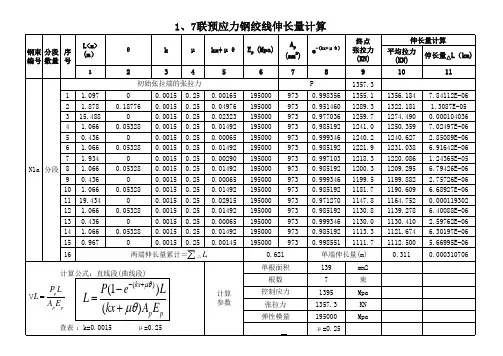 1、7联预应力钢绞线伸长量计算
钢束编号 分段数量 序号 L(m) (m) θ k μ kx+μθ Ep (Mpa) Ap (mm²) e-(kx+μθ) 终点张拉力(KN) 伸长量计算
平均张拉力(KN) 伸长量△L(km)
1 2 3 4 5 6 7 8 9 10 11
初始张拉端的张拉力 P 1357.3
N1a 分段
1 1.097 0 0.0015 0.25 0.00165 195000 973 0.998356 1355.1 1356.184 7.84112E-06
2 1.878 0.18776 0.0015 0.25 0.04976 195000 973 0.951460 1289.3 1322.181 1.3087E-05
3 15.488 0 0.0015 0.25 0.02323 195000 973 0.977036 1259.7 1274.490 0.000104036
4 1.066 0.05328 0.0015 0.25 0.01492 195000 973 0.985192 1241.0 1250.359 7.02497E-06
5 0.436 0 0.0015 0.25 0.00065 195000 973 0.999346 1240.2 1240.627 2.85089E-06
6 1.066 0.05328 0.0015 0.25 0.01492 195000 973 0.985192 1221.9 1231.038 6.91642E-06
7 1.934 0 0.0015 0.25 0.00290 195000 973 0.997103 1218.3 1220.086 1.24365E-05
8 1.066 0.05328 0.0015 0.25 0.01492 195000 973 0.985192 1200.3 1209.295 6.79426E-06
9 0.436 0 0.0015 0.25 0.00065 195000 973 0.999346 1199.5 1199.882 2.75726E-06
10 1.066 0.05328 0.0015 0.25 0.01492 195000 973 0.985192 1181.7 1190.609 6.68927E-06
11 19.434 0 0.0015 0.25 0.02915 195000 973 0.971270 1147.8 1164.752 0.000119302
12 1.066 0.05328 0.0015 0.25 0.01492 195000 973 0.985192 1130.8 1139.278 6.40088E-06
13 0.436 0 0.0015 0.25 0.00065 195000 973 0.999346 1130.0 1130.410 2.59762E-06
14 1.066 0.05328 0.0015 0.25 0.01492 195000 973 0.985192 1113.3 1121.674 6.30197E-06
15 0.967 0 0.0015 0.25 0.00145 195000 973 0.998551 1111.7 1112.500 5.66995E-06
16 两端伸长量累计=∑△L 0.621 单端伸长量(m) 0.311 0.000310706
计算公式:直线段(曲线段)
∇L = PpL / ApEp
L = P(1 − e−(kx+μθ))L / (kx + μθ)ApEp
查表:k=0.0015 μ=0.25
计算参数
单根面积 139 mm2
根数 7 束
控制应力 1395 Mpa
张拉力 1357.3 KN
弹性模量 195000 Mpa
μ=0.25